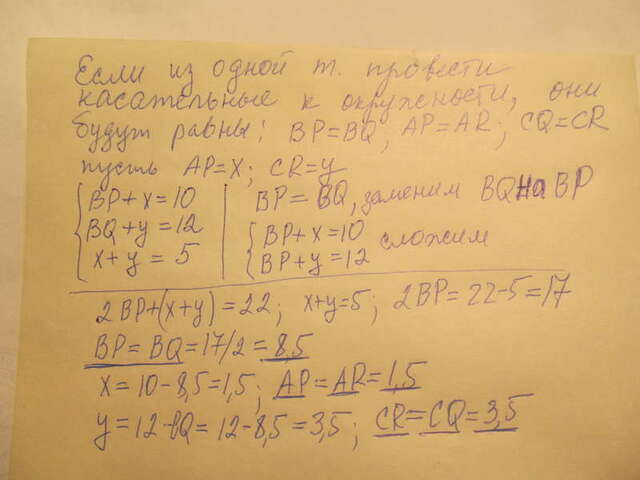 Если из одной т. провести
касательные к окружности, они
будут равны: BP=BQ, AP=AR; CQ=CR
пусть AP=x; CR=y
BP+x=10 BP=BQ, заменим BQ на BP
BQ+y=12 BP+x=10 сложим
x+y=5 BP+y=12
2BP+(x+y)=22; x+y=5; 2BP=22-5=17
BP=BQ=17/2=8,5
x=10-8,5=1,5; AP=AR=1,5
y=12-BQ=12-8,5=3,5; CR=CQ=3,5